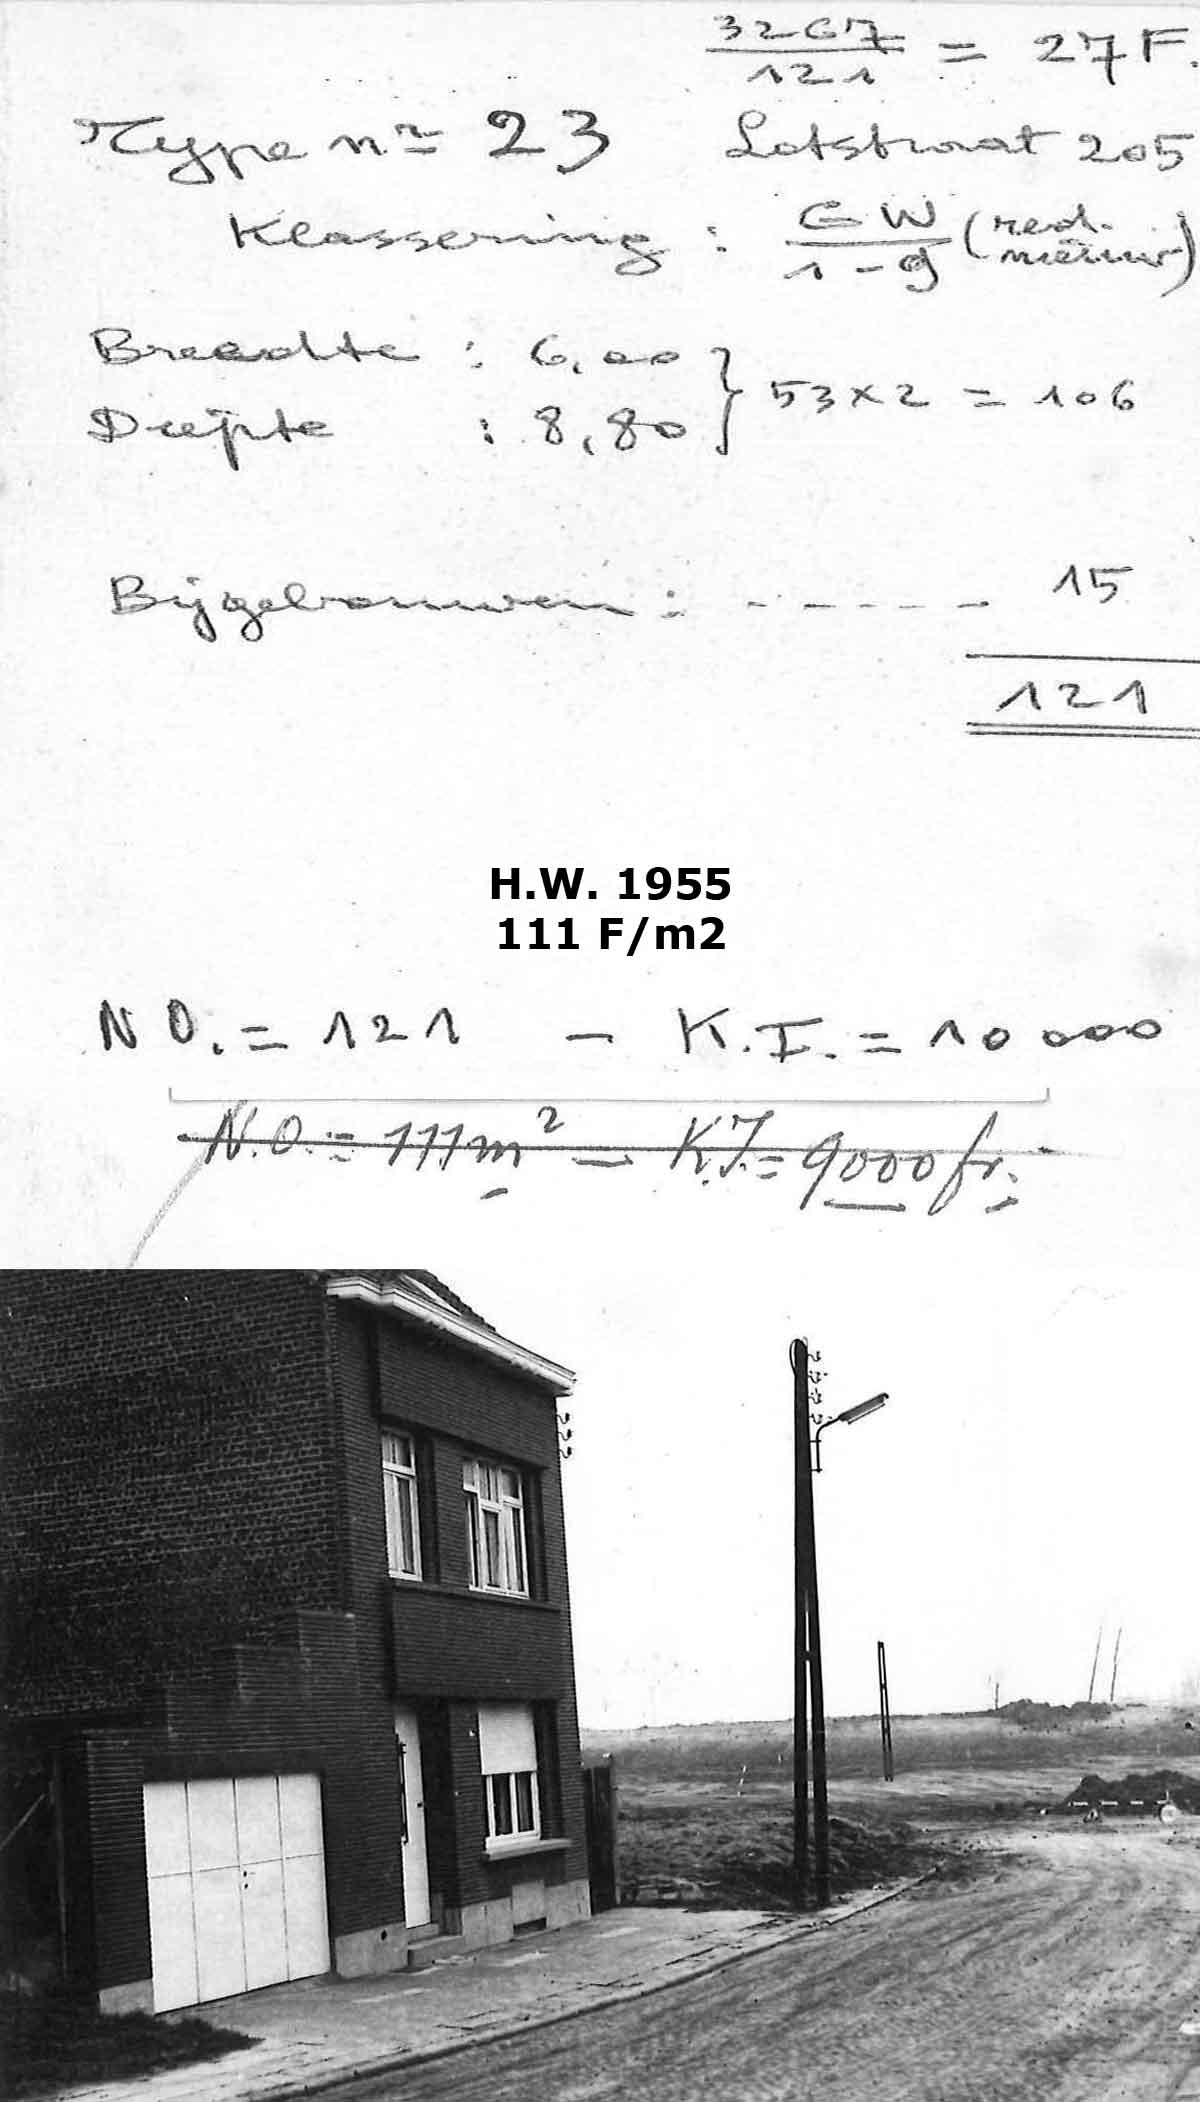 3267
121 = 27 F.
Type nr 23 Lotstraat 205
Klassering : GW (red.
1-g meuur)
Breedte : 6,00 } 53 x 2 = 106
Diepte : 8,80
Bijgebouwen : - - - - - - 15
121
H.W. 1955
111 F/m2
N O. = 121 - K.I. = 10 000
N.O. = 111 m² - K.I. = 9000 fr.